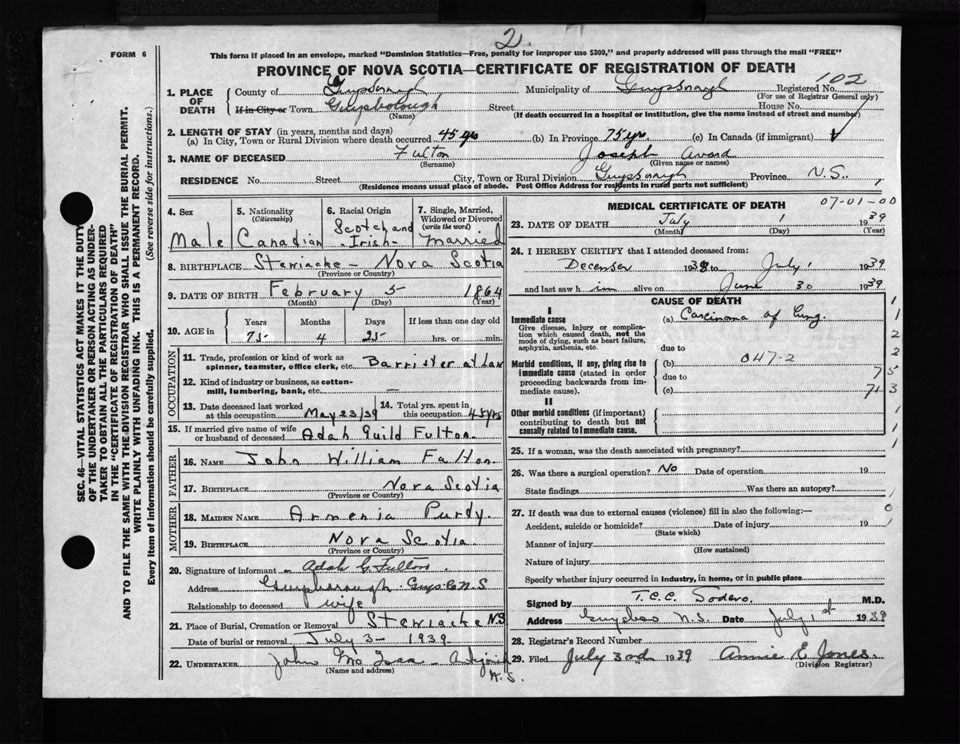 2
FORM 6
This form if placed in an envelope, marked "Dominion Statistics—Free, penalty for improper use $300," and properly addressed will pass through the mail "FREE"
PROVINCE OF NOVA SCOTIA—CERTIFICATE OF REGISTRATION OF DEATH
SEC. 46—VITAL STATISTICS ACT MAKES IT THE DUTY
OF THE UNDERTAKER OR PERSON ACTING AS UNDER-
TAKER TO OBTAIN ALL THE PARTICULARS REQUIRED
IN THE "CERTIFICATE OF REGISTRATION OF DEATH"
AND TO FILE THE SAME WITH THE DIVISION REGISTRAR WHO SHALL ISSUE THE BURIAL PERMIT.
WRITE PLAINLY WITH UNFADING INK. THIS IS A PERMANENT RECORD.
Every item of Information should be carefully supplied. (See reverse side for instructions.)
1. PLACE OF DEATH
County of Guysborough Municipality of Guysborough Registered No. 102
(For use of Registrar General only)
If in City or Town Guysborough Street House No.
(Name) (If death occurred in a hospital or institution, give the name instead of street and number)
2. LENGTH OF STAY (in years, months and days)
(a) In City, Town or Rural Division where death occurred 45 yrs (b) In Province 75 yrs. (c) In Canada (if immigrant)
3. NAME OF DECEASED Fulton Joseph Avard
(Surname) (Given name or names)
RESIDENCE No. Street City, Town or Rural Division Guysborough Province N.S.
(Residence means usual place of abode. Post Office Address for residents in rural parts not sufficient)
4. Sex Male
5. Nationality (Citizenship) Canadian
6. Racial Origin Scotch and Irish
7. Single, Married, Widowed or Divorced (write the word) Married
8. BIRTHPLACE Stewiacke - Nova Scotia
(Province or Country)
9. DATE OF BIRTH February 5 1864
(Month) (Day) (Year)
10. AGE in Years Months Days If less than one day old
75 4 25 hrs. or min.
OCCUPATION
11. Trade, profession or kind of work as spinner, teamster, office clerk, etc. Barrister at Law
12. Kind of industry or business, as cotton-mill, lumbering, bank, etc. —
13. Date deceased last worked at this occupation May 23/39
14. Total yrs. spent in this occupation 45 yrs
15. If married give name of wife or husband of deceased Adah Guild Fulton
FATHER
16. NAME John William Fulton
17. BIRTHPLACE Nova Scotia
(Province or Country)
MOTHER
18. MAIDEN NAME Armenia Purdy.
19. BIRTHPLACE Nova Scotia
(Province or Country)
20. Signature of informant Adah G. Fulton
Address Guysborough Guys. Co. N S
Relationship to deceased wife
21. Place of Burial, Cremation or Removal Stewiacke N.S
Date of burial or removal July 3 - 1939
22. UNDERTAKER John
(Name and address) N.S.
MEDICAL CERTIFICATE OF DEATH 07-01-00
23. DATE OF DEATH July 1 1939
(Month) (Day) (Year)
24. I HEREBY CERTIFY that I attended deceased from:
December 1938 to July 1 1939
and last saw him alive on June 30 1939
CAUSE OF DEATH
I
Immediate cause (a) Carcinoma of Lung.
Give disease, injury or complication which caused death, not the mode of dying, such as heart failure, asphyxia, asthenia, etc.
due to
Morbid conditions, if any, giving rise to immediate cause (stated in order proceeding backwards from immediate cause).
(b) 047-2
due to
(c)
II
Other morbid conditions (if important) contributing to death but not causally related to immediate cause.
25. If a woman, was the death associated with pregnancy?
26. Was there a surgical operation? No Date of operation 19
State findings Was there an autopsy?
27. If death was due to external causes (violence) fill in also the following:—
Accident, suicide or homicide? Date of injury 19
(State which)
Manner of injury
(How sustained)
Nature of injury
Specify whether injury occurred in industry, in home, or in public place
Signed by T.C.C. Sodero. M.D.
Address Guysboro N.S. Date July 1st 1939
28. Registrar's Record Number
29. Filed July 3rd 1939 Annie E. Jones.
(Division Registrar)